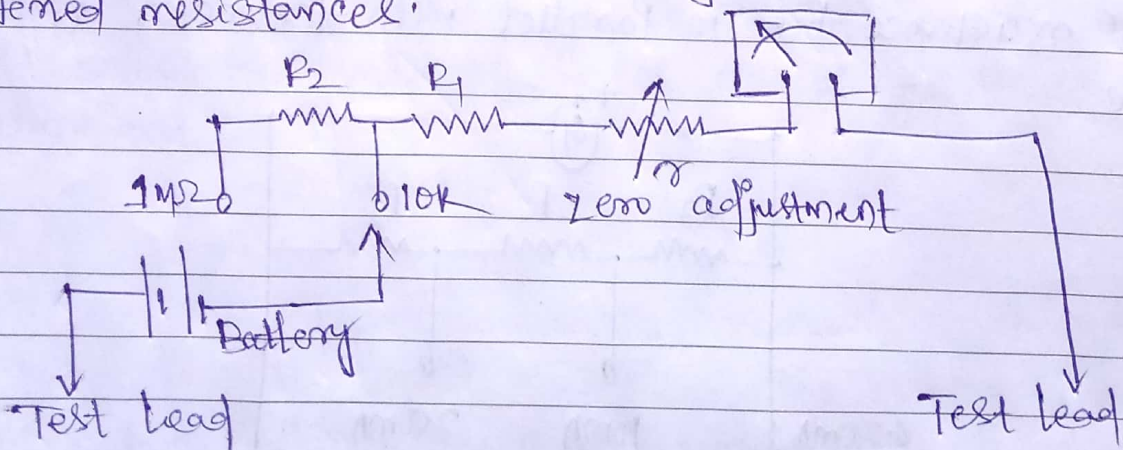 resistances.
R2 R1
1MΩ 10K zero adjustment
r
Battery
Test lead Test lead